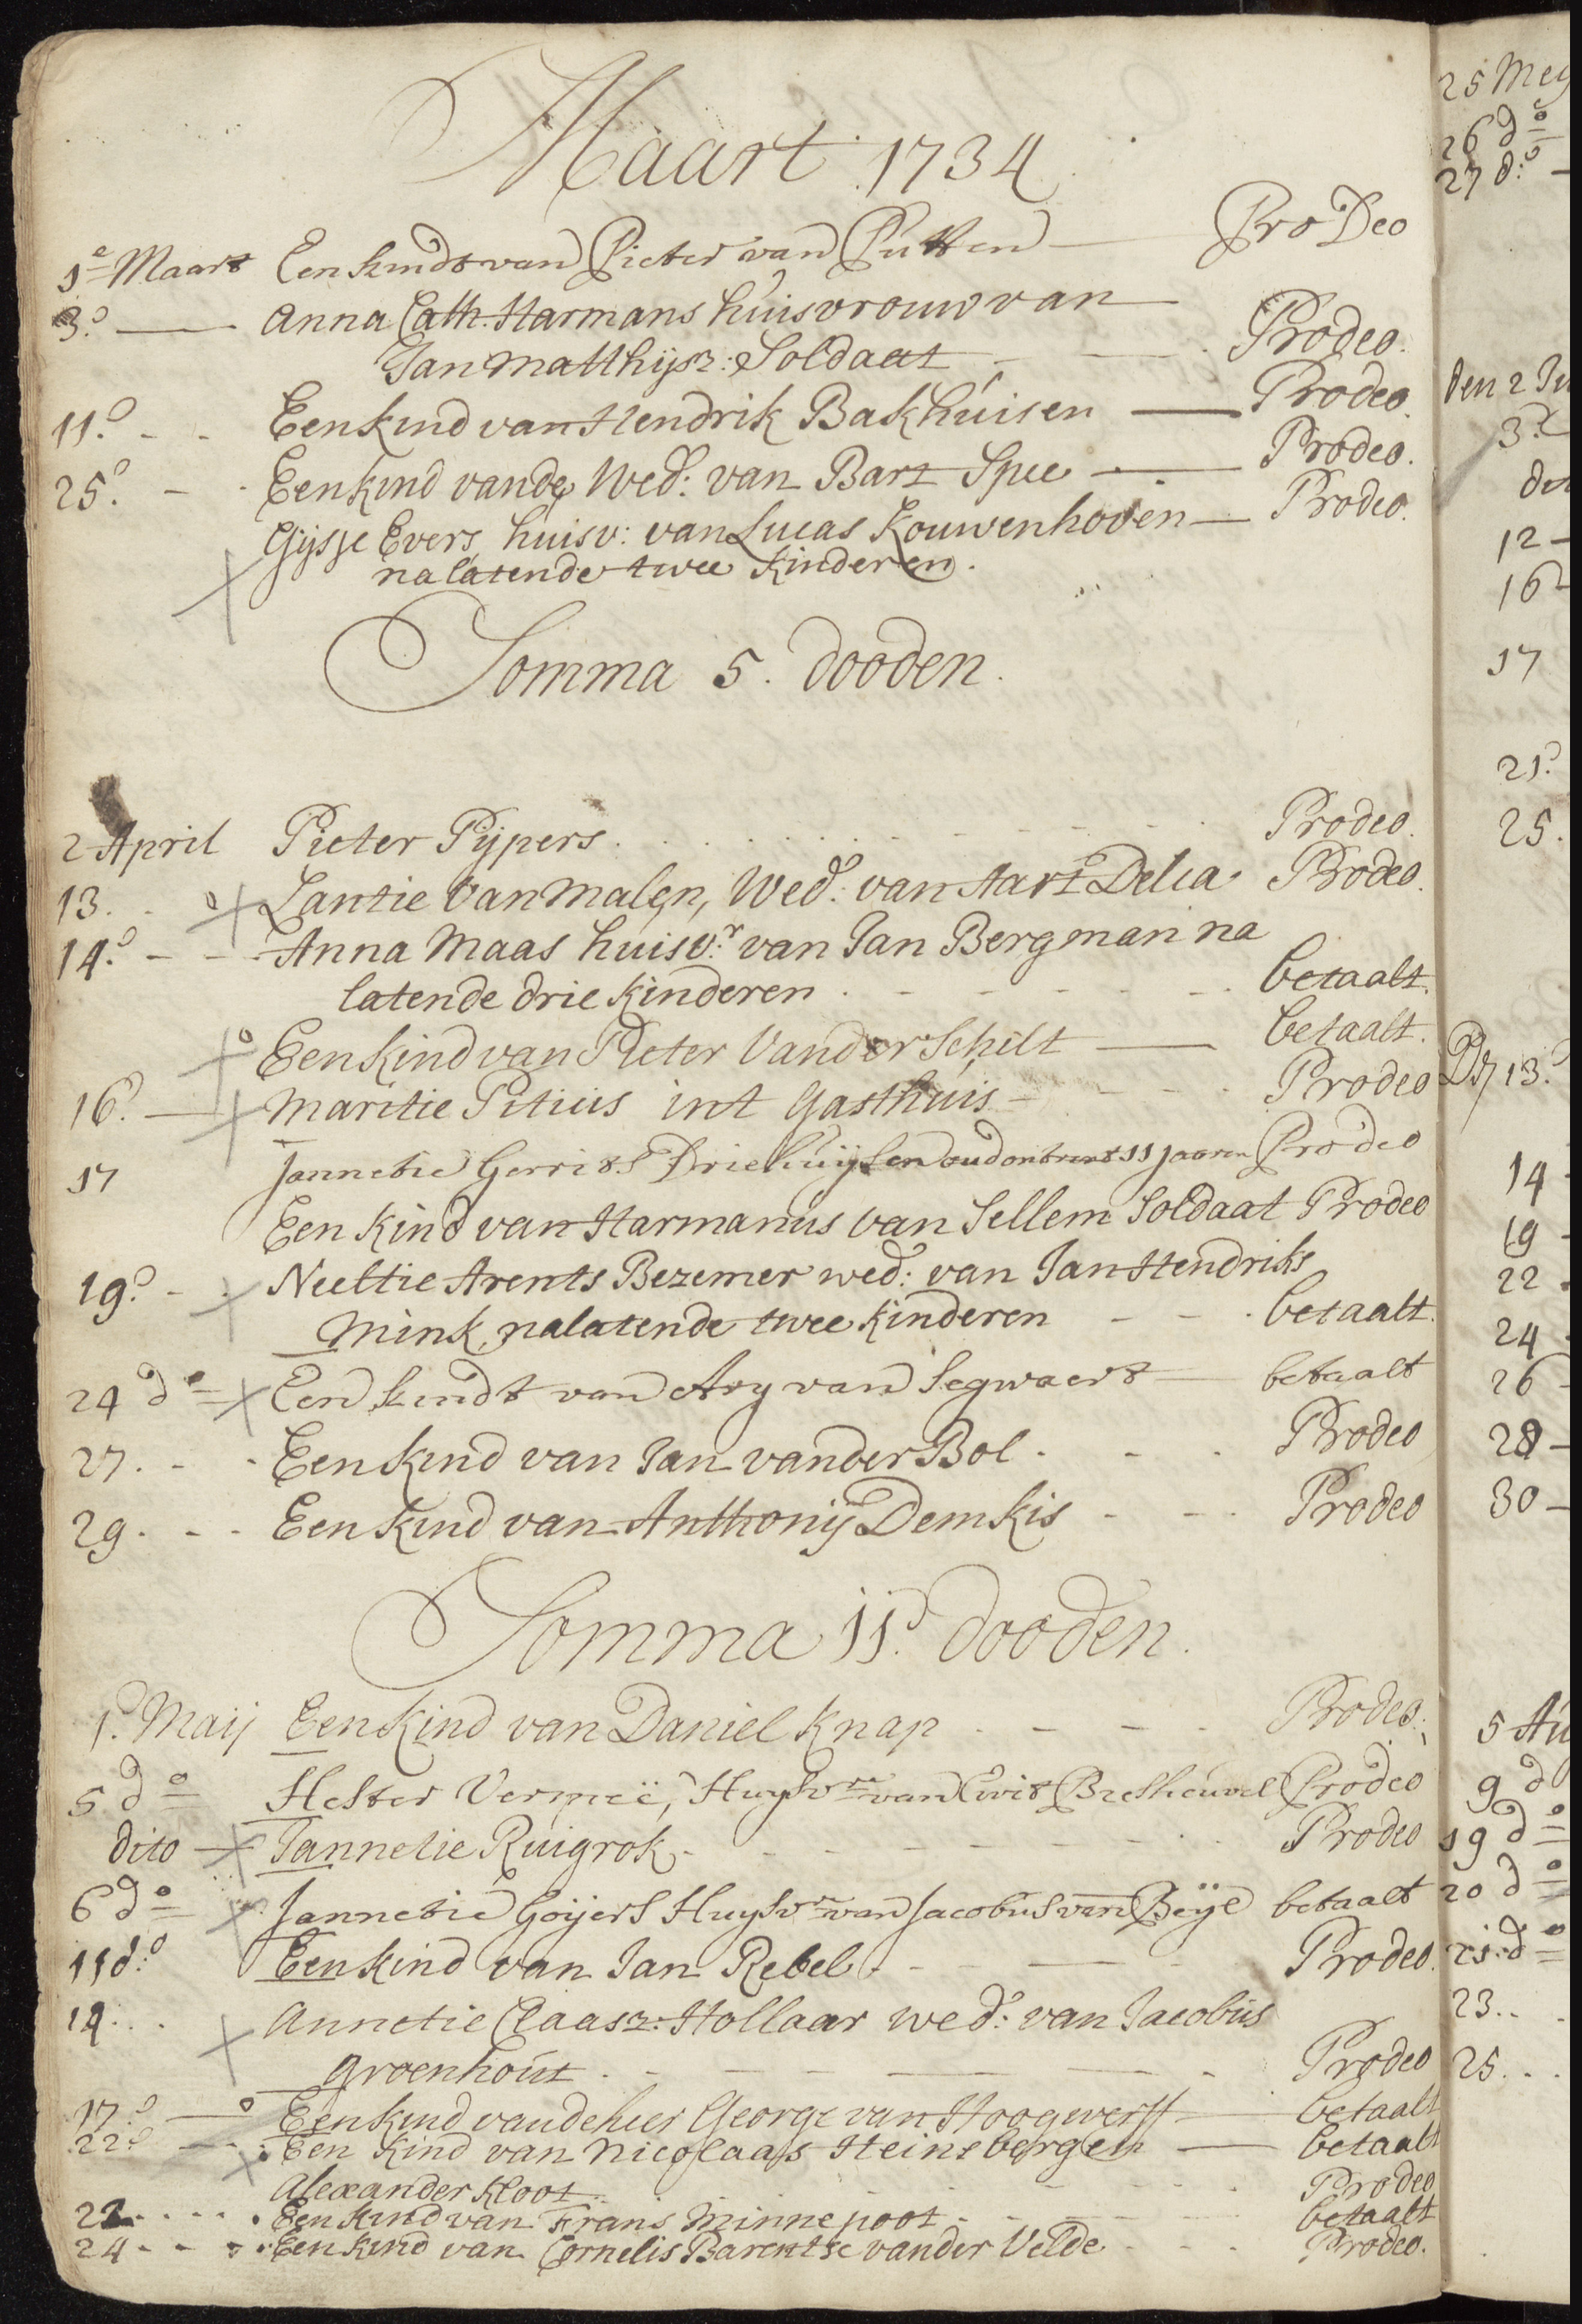 Maart 1734
1e Maart Een kindt van Pieter van Putten — Pro Deo
3.o — Anna Cath. Harmans huisvrouw van
Jan Matthijsz: Soldaat - - Prodeo.
11.o - - Een kind van Hendrik Bakhuisen — Prodeo.
25.o - - Een kind vande Wed: van Bart Spee — Prodeo.
Gijsje Evers huisv: van Lucas Kouwenhoven — Prodeo.
nalatende twee kinderen.
Somma 5. dooden.
2 April Pieter Pijpers . . . . Prodeo.
13. . Lantie van Malen, Wed: van Aart Delia Prodeo.
14.o - - Anna Maas huisv.r van Jan Bergman na
latende drie kinderen . - - - betaalt.
Een kind van Pieter Vander Schilt — betaalt.
16.o — Maritie Pitius int Gasthuis - - - Prodeo
17 Jannetie Gerrits Driehuijsen oud ontrent 11 jaaren Prodeo
Een kind van Harmanus van Sellem Soldaat Prodeo
19.o - . Neeltie Arents Bezemer wed: van Jan Hendriks
Mink, nalatende twee kinderen - - . betaalt.
24 do Een kindt van Ary van Segwaert — betaalt
27. - . Een kind van Jan vander Bol . - . Prodeo
29. - - Een kind van Anthonij Demkis - - . Prodeo
Somma 11.o dooden.
1.o Maij Een kind van Daniel Knap . - - . Prodeo.
5 do Hester Vermeë, Huysvre van Evert Bresheuvel Prodeo
dito — Jannetie Ruigrok. - - - - Prodeo
6 do Jannetie Goijers Huysvre van Jacobus van Beÿe betaalt
11 d:o Een kind van Jan Rebel . - — - Prodeo.
14. . . Annetie Claasz: Hollaar wed: van Jacobus
Groenhout . - — - — . Prodeo
17.o — Een kind van de heer George van Hoogwerff — betaalt
22.o — Een kind van Nicolaas Heinsbergen — betaalt
Alexander Kloot . . - - - Prodeo
22. . . . Een kind van Frans Minnepoot - - - betaalt
24 - - Een kind van Cornelis Barentse vander Velde . - . Prodeo.
25 Mey
26 do
27 d:o -
den 2 Ju
3.o
12 -
16
17
21.o
25.
13.o
14 -
19 -
22 .
24 -
26 -
28 -
30 -
5 Au
9 do
19 do
20 do
21 do
23. . .
25. . .